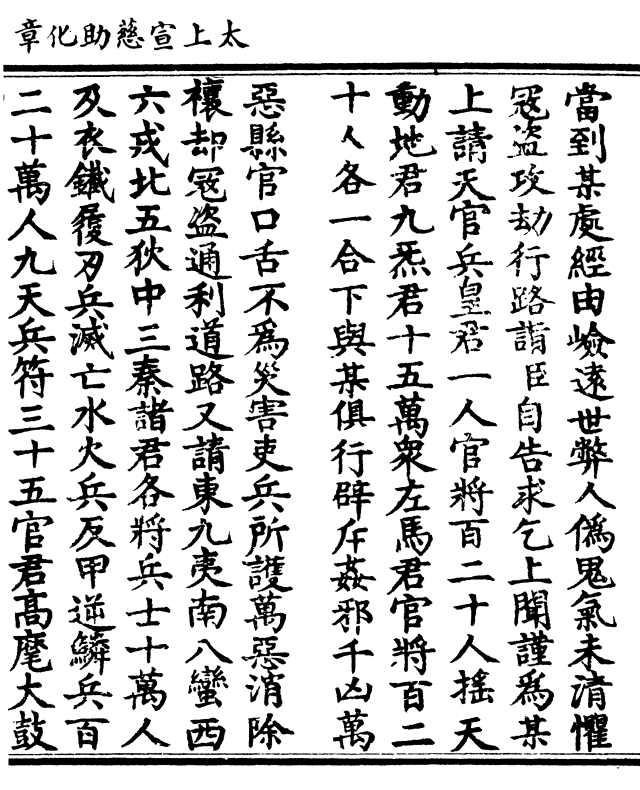 太上宣慈助化章
當到某處經由嶮遠世弊人僞鬼氣未清懼
冦盜攻劫行路請臣自告求乞上聞謹爲某
上請天官兵皇君一人官將百二十人搖天
動地君九炁君十五萬衆左馬君官將百二
十人各一合下與某俱行辟斥姦邪千凶萬
惡縣官口舌不爲災害吏兵所護萬惡消除
禳却冦盜通利道路又請東九夷南八蠻西
六戎北五狄中三秦諸君各將兵士十萬人
及衣鐵履刃兵滅亡水火兵反甲逆鱗兵百
二十萬人九天兵符三十五官君髙麾大鼓